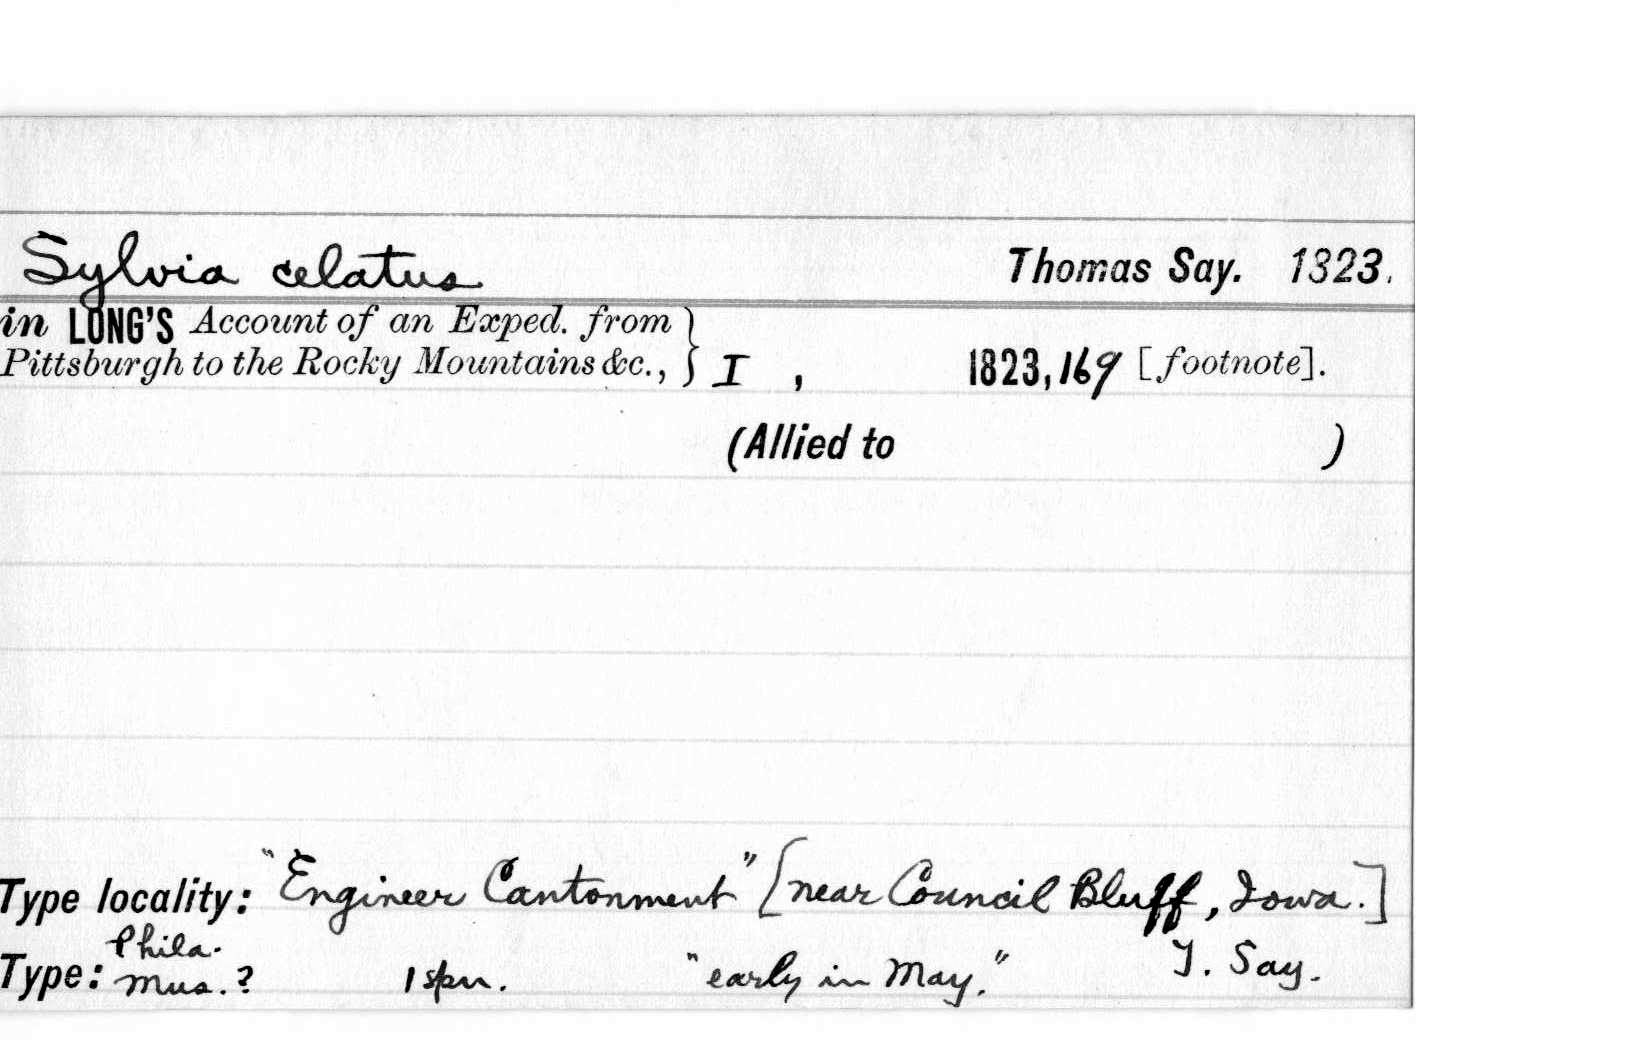 Sylvia celatus Thomas Say. 1823.
in LONG'S Account of an Exped. from
Pittsburgh to the Rocky Mountains &c., } I , 1823, 169 [footnote].
(Allied to )
Type locality: "Engineer Cantonment" [near Council Bluff, Iowa.]
Phila.
Type: Mus. ? 1 spn. "early in May." T. Say.